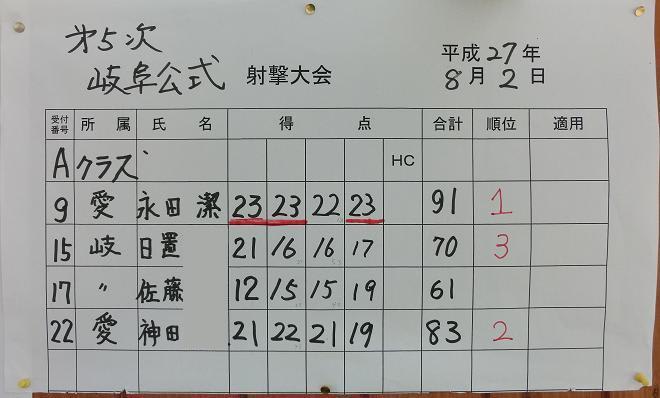 第5次
岐阜公式 射撃大会
平成27年
8月2日
受付番号 所属 氏名 得点 合計 順位 適用
Aクラス HC
9 愛 永田 潔 23 23 22 23 91 1
15 岐 日置 21 16 16 17 70 3
17 〃 佐藤 12 15 15 19 61
22 愛 神田 21 22 21 19 83 2